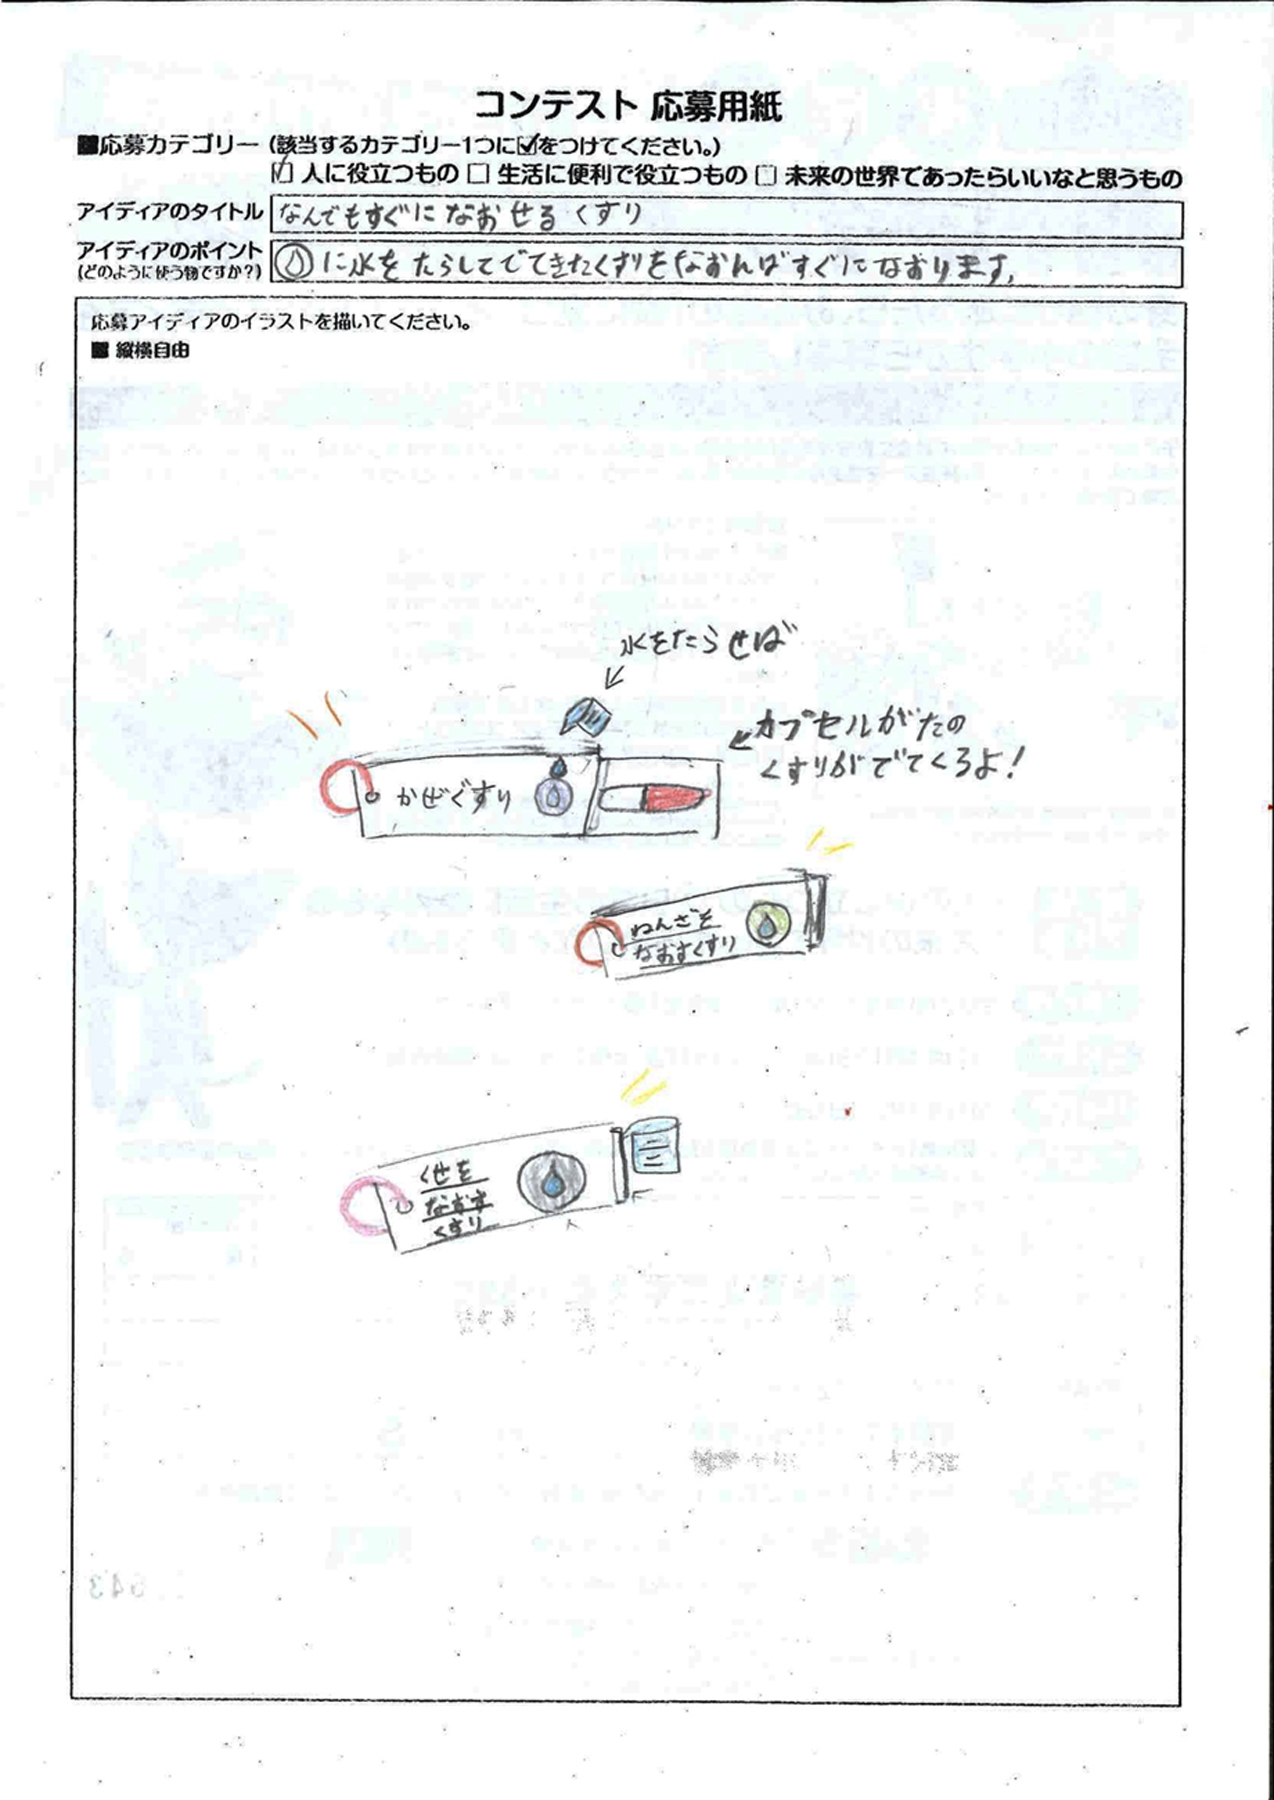 コンテスト 応募用紙
■応募カテゴリー (該当するカテゴリー1つに☑をつけてください。)
☑ 人に役立つもの □ 生活に便利で役立つもの □ 未来の世界であったらいいなと思うもの
アイディアのタイトル なんでもすぐになおせるくすり
アイディアのポイント
(どのように使う物ですか?) に水をたらしてでてきたくすりをなおんばすぐになおります。
応募アイディアのイラストを描いてください。
■ 縦横自由
水をたらせば
カプセルがたの
くすりがでてくるよ!
かぜぐすり
ねんざを
なおすくすり
くせを
なおす
くすり